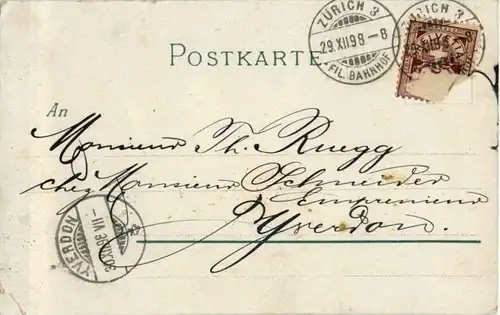 POSTKARTE
ZÜRICH 3
29.XII.98-8
FIL. BAHNHOF
ZÜRICH 3
An
Monsieur Th. Ruegg
chez Monsieur Schneider
Empreneur
Yverdon.
YVERDON
30.XII.98.VII-